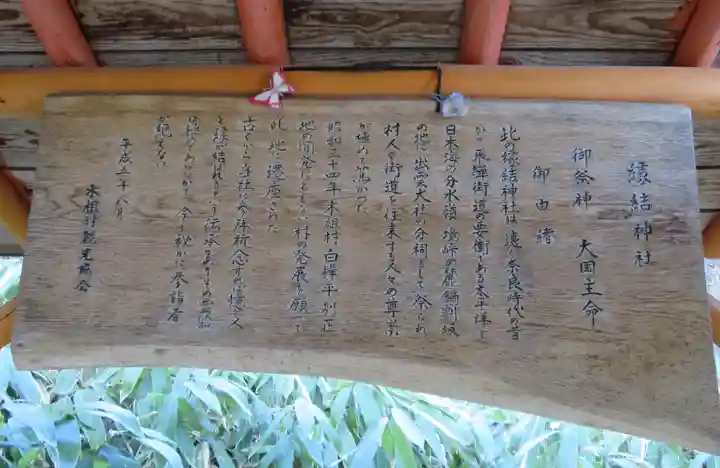 縁結神社
御祭神 大国主命
御由緒
此の縁結神社は遠く奈良時代の昔
から飛騨街道の要衝である太平洋と
日本海の分水嶺境峠の麓鍋割坂
の地に出雲大社の分祠として祭られ
村人や街道を往来する人々の尊崇
が極めて篤かった
昭和三十四年木祖村白樺平別荘
地の開発にともない村の発展を願って
此の地に遷座された
古くから当社に参拝祈念すれば意中の人
と縁が結ばれるという伝承
今も秘かに参詣者
が絶えない
平成三年八月
木祖村観光協会